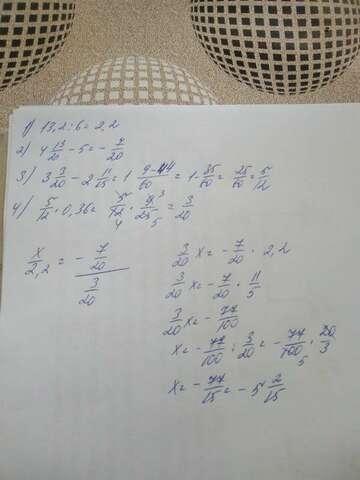 1) 13,2:6=2,2
2) 4 13/20 - 5 = - 7/20
3) 3 3/20 - 2 11/15 = 1 9-44/60 = 1 - 35/60 = 25/60 = 5/12
4) 5/12 · 0,36 = 5/12 · 9/25 = 3/20
x/2,2 = - 7/20 / 3/20
3/20 x = - 7/20 · 2,2
3/20 x = - 7/20 · 11/5
3/20 x = - 77/100
x = - 77/100 : 3/20 = - 77/100 · 20/3
x = - 77/15 = - 5 2/15